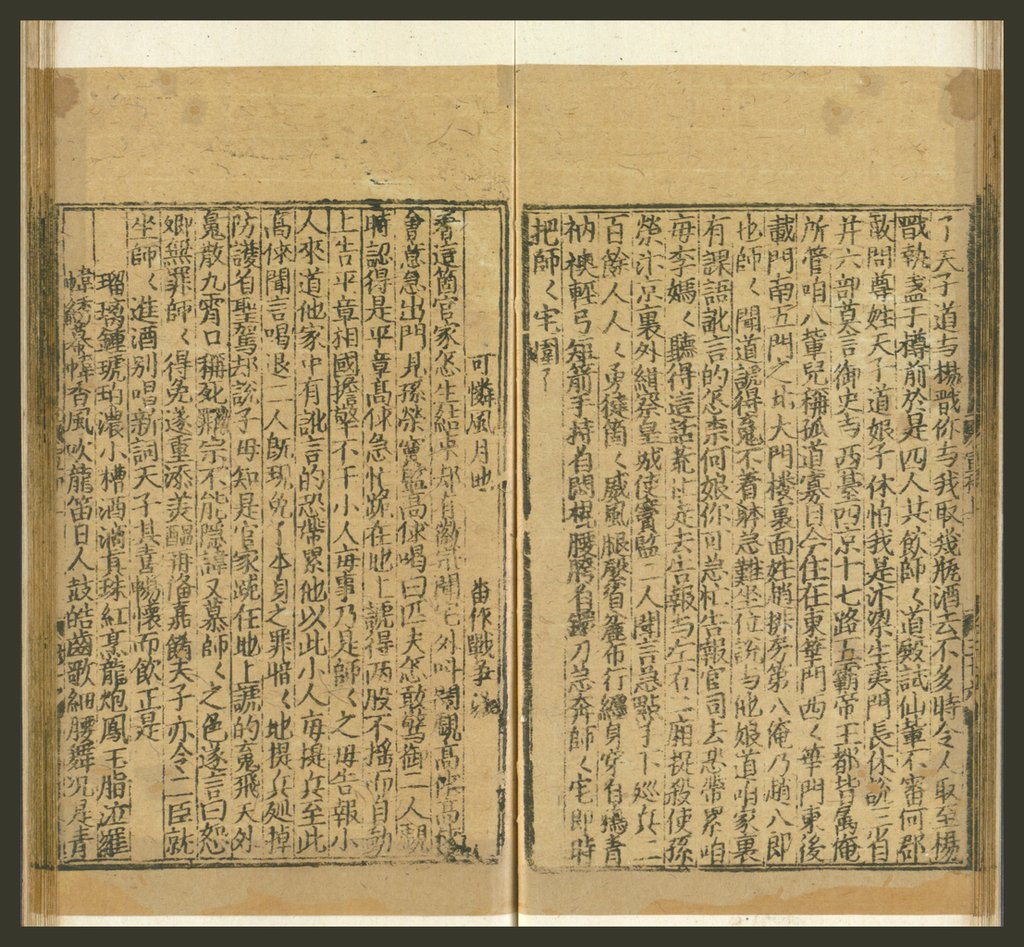 了天子道与楊戩你与我取幾瓶酒去不多時令人取至楊
戩執盞于樽前於是四人共飲師〱道殿試仙輩不審何郡
敢問尊姓天子道娘子休怕我是汴梁生夷門長休說三省
并六部莫言御史与西臺四京十七路五霸帝王都皆属俺
所管咱八輩兒稱孤道寡目今住在東華門西〱華門東後
載門南五門之北大門樓裏面姓趙排房第八俺乃趙八郎
也師〱聞道諕得魂不着躰急離坐位說与他娘道咱家裏
有課語訛言的怎柰何娘你可急忙告報官司去恐帶累咱
每李媽〱聽得這話慌忙走去告報与左右二廂捉殺使孫
榮汴京裏外緝察皇城使竇監二人聞言急點手下巡兵二
百餘人人〱勇徤箇〱威風腿繫着麄布行纏身穿着鴉青
衲襖輕弓短箭手持着悶棍腰胯着鐶刀急奔師〱宅即時
把師〱宅圍了
可憐風月地 番作戰爭塲
看這箇官家怎生結束却有徽宗聞宅外叫鬧覷高俅高俅
會意急出門見孫榮竇監高俅喝曰匹夫怎敢驚御二人覷
時認得是平章高俅急忙跪在地上諕得两股不摇而自動
上告平章相國擔驚不干小人每事乃是師〱之母告報小
人來道他家中有訛言的恐帶累他以此小人每提兵至此
高俅聞言喝退二人既現免了本身之罪暗〱地提兵廵掉
防護着聖駕却說子母知是官家跪在地上諕的魂飛天外
魄散九宵口稱死罪宗不能隱諱又慕師〱之色遂言曰恕
卿無罪師〱得免遂重添羙醖再備嘉餚天子亦令二臣就
坐師〱進酒别唱新詞天子甚喜暢懷而飲正是
瑠璃鍾琥珀濃小槽酒滴真珠紅烹龍炮鳳玉脂泣羅
幃綉幕幃香風吹龍笛人鼓皓齒歌細腰舞况是青